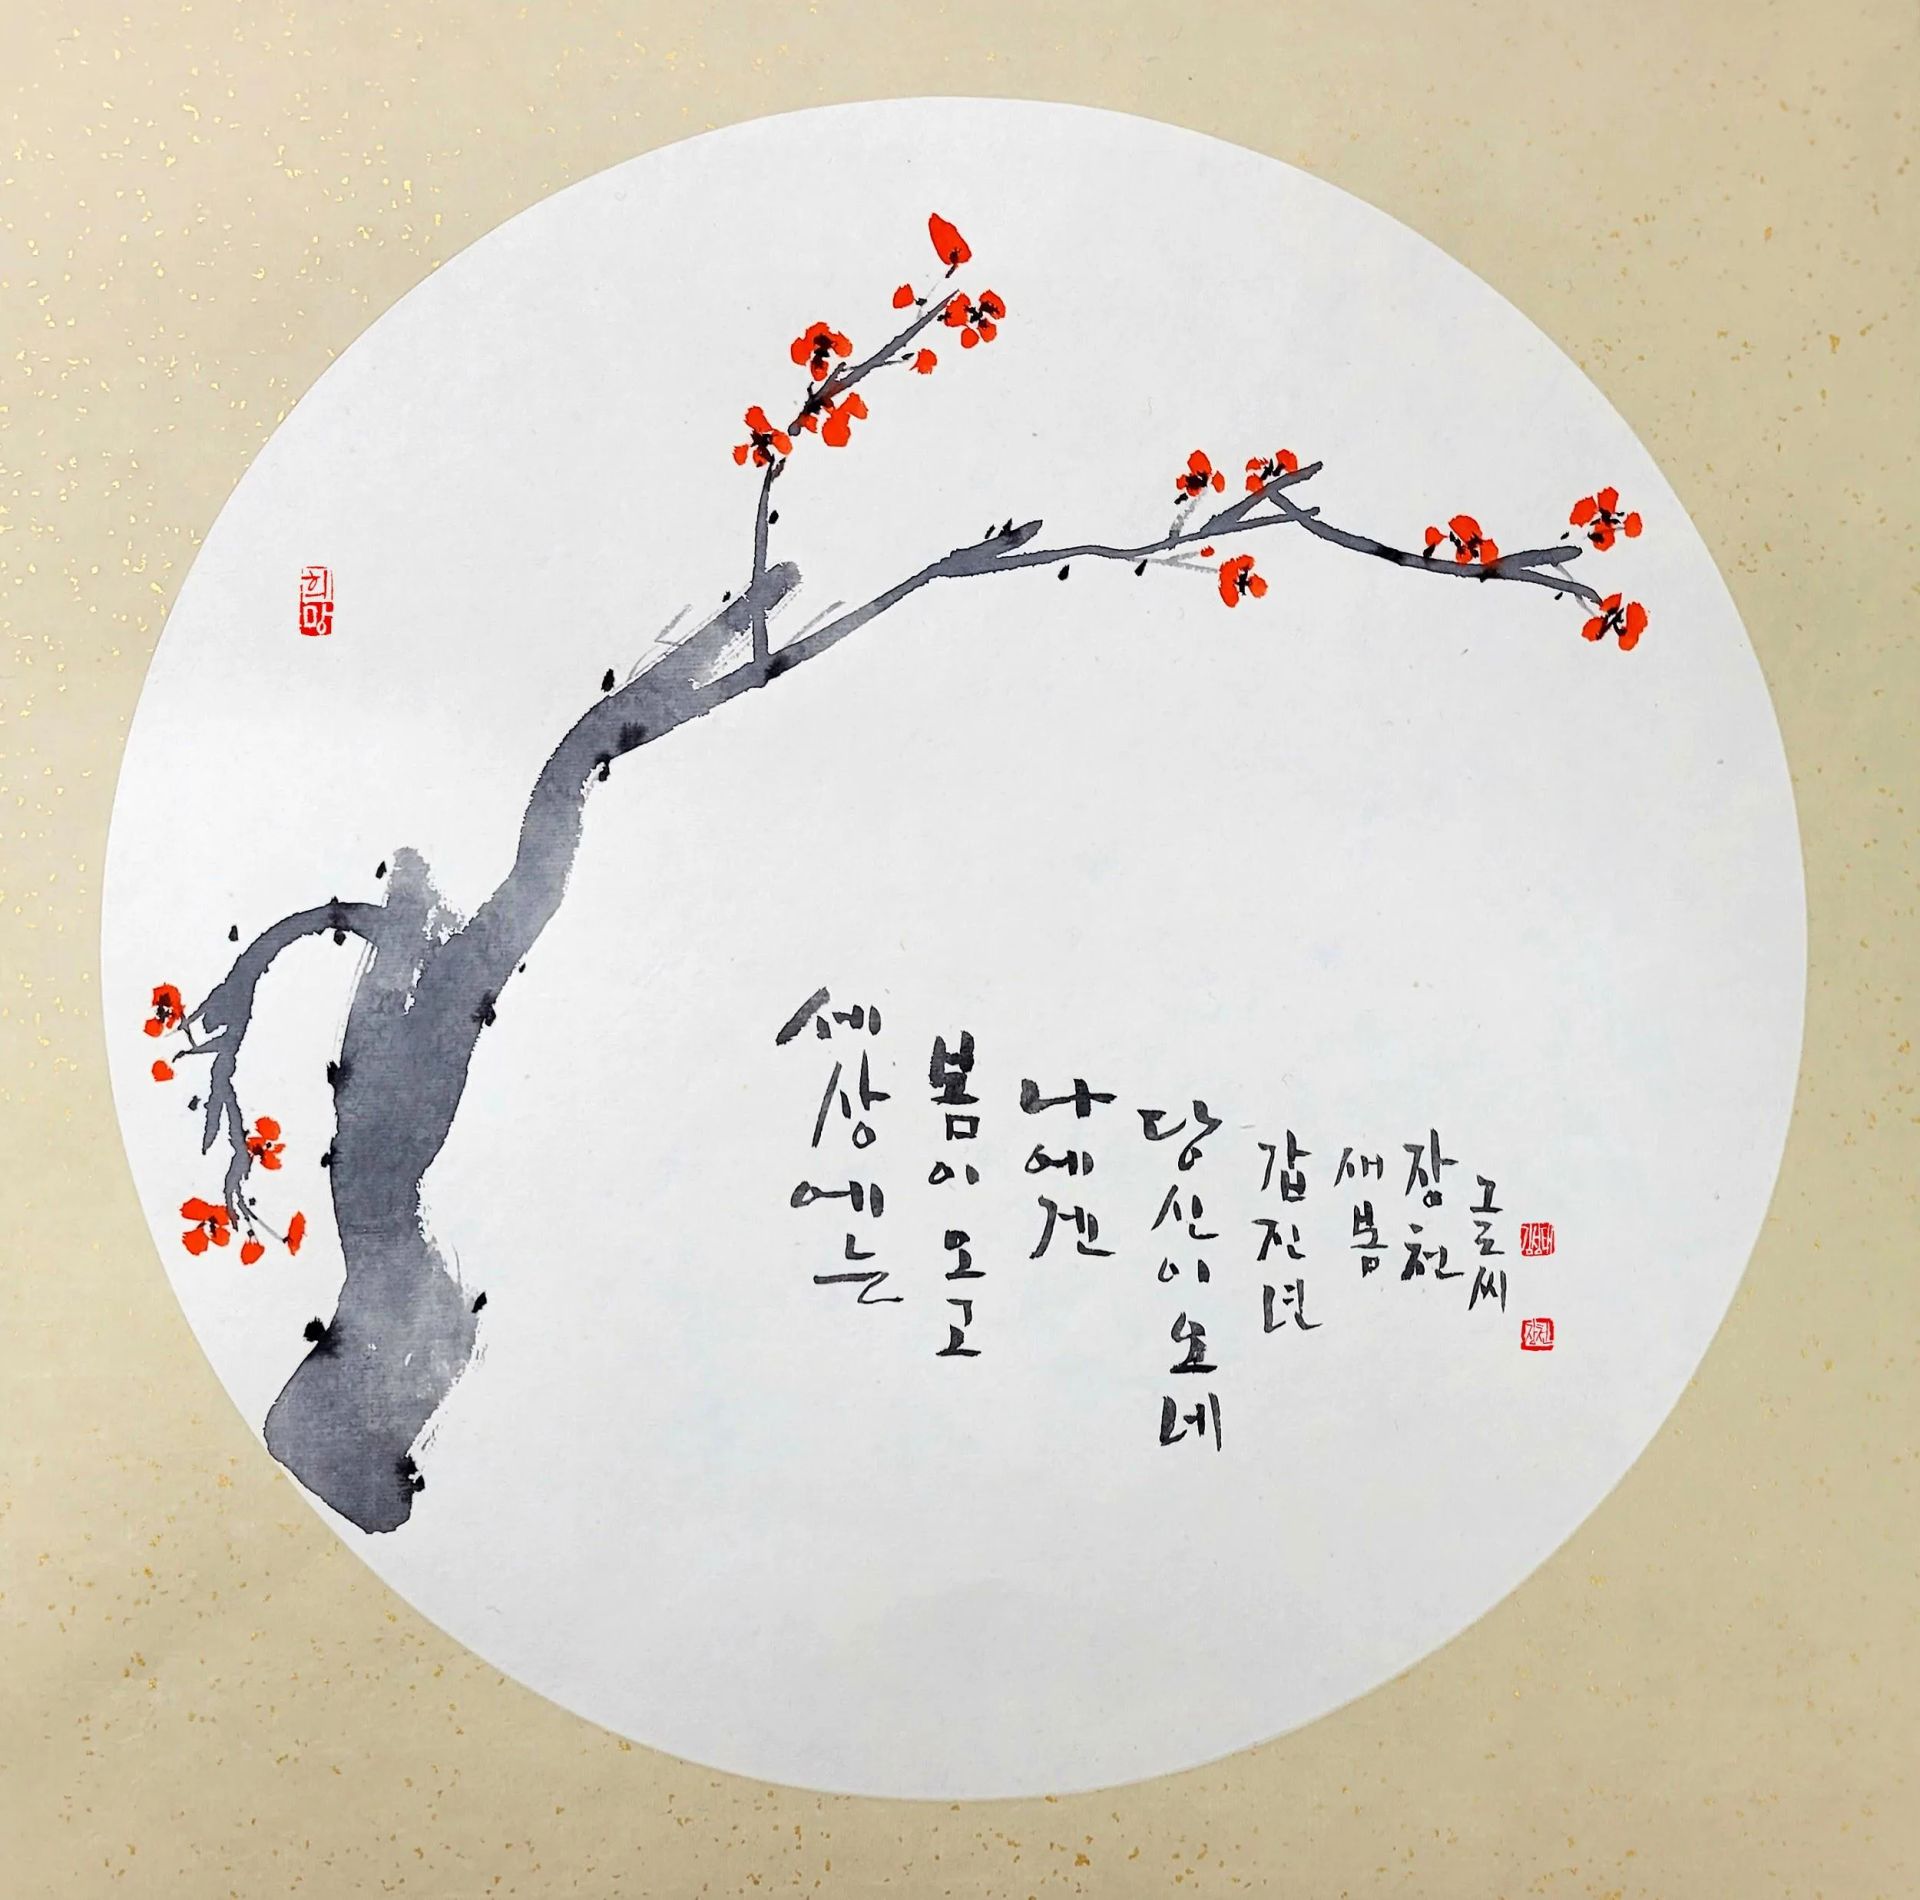 희망
세상에는
봄이오고
나에겐
당신이오네
갑진년
새봄
장천
그로씨
장천